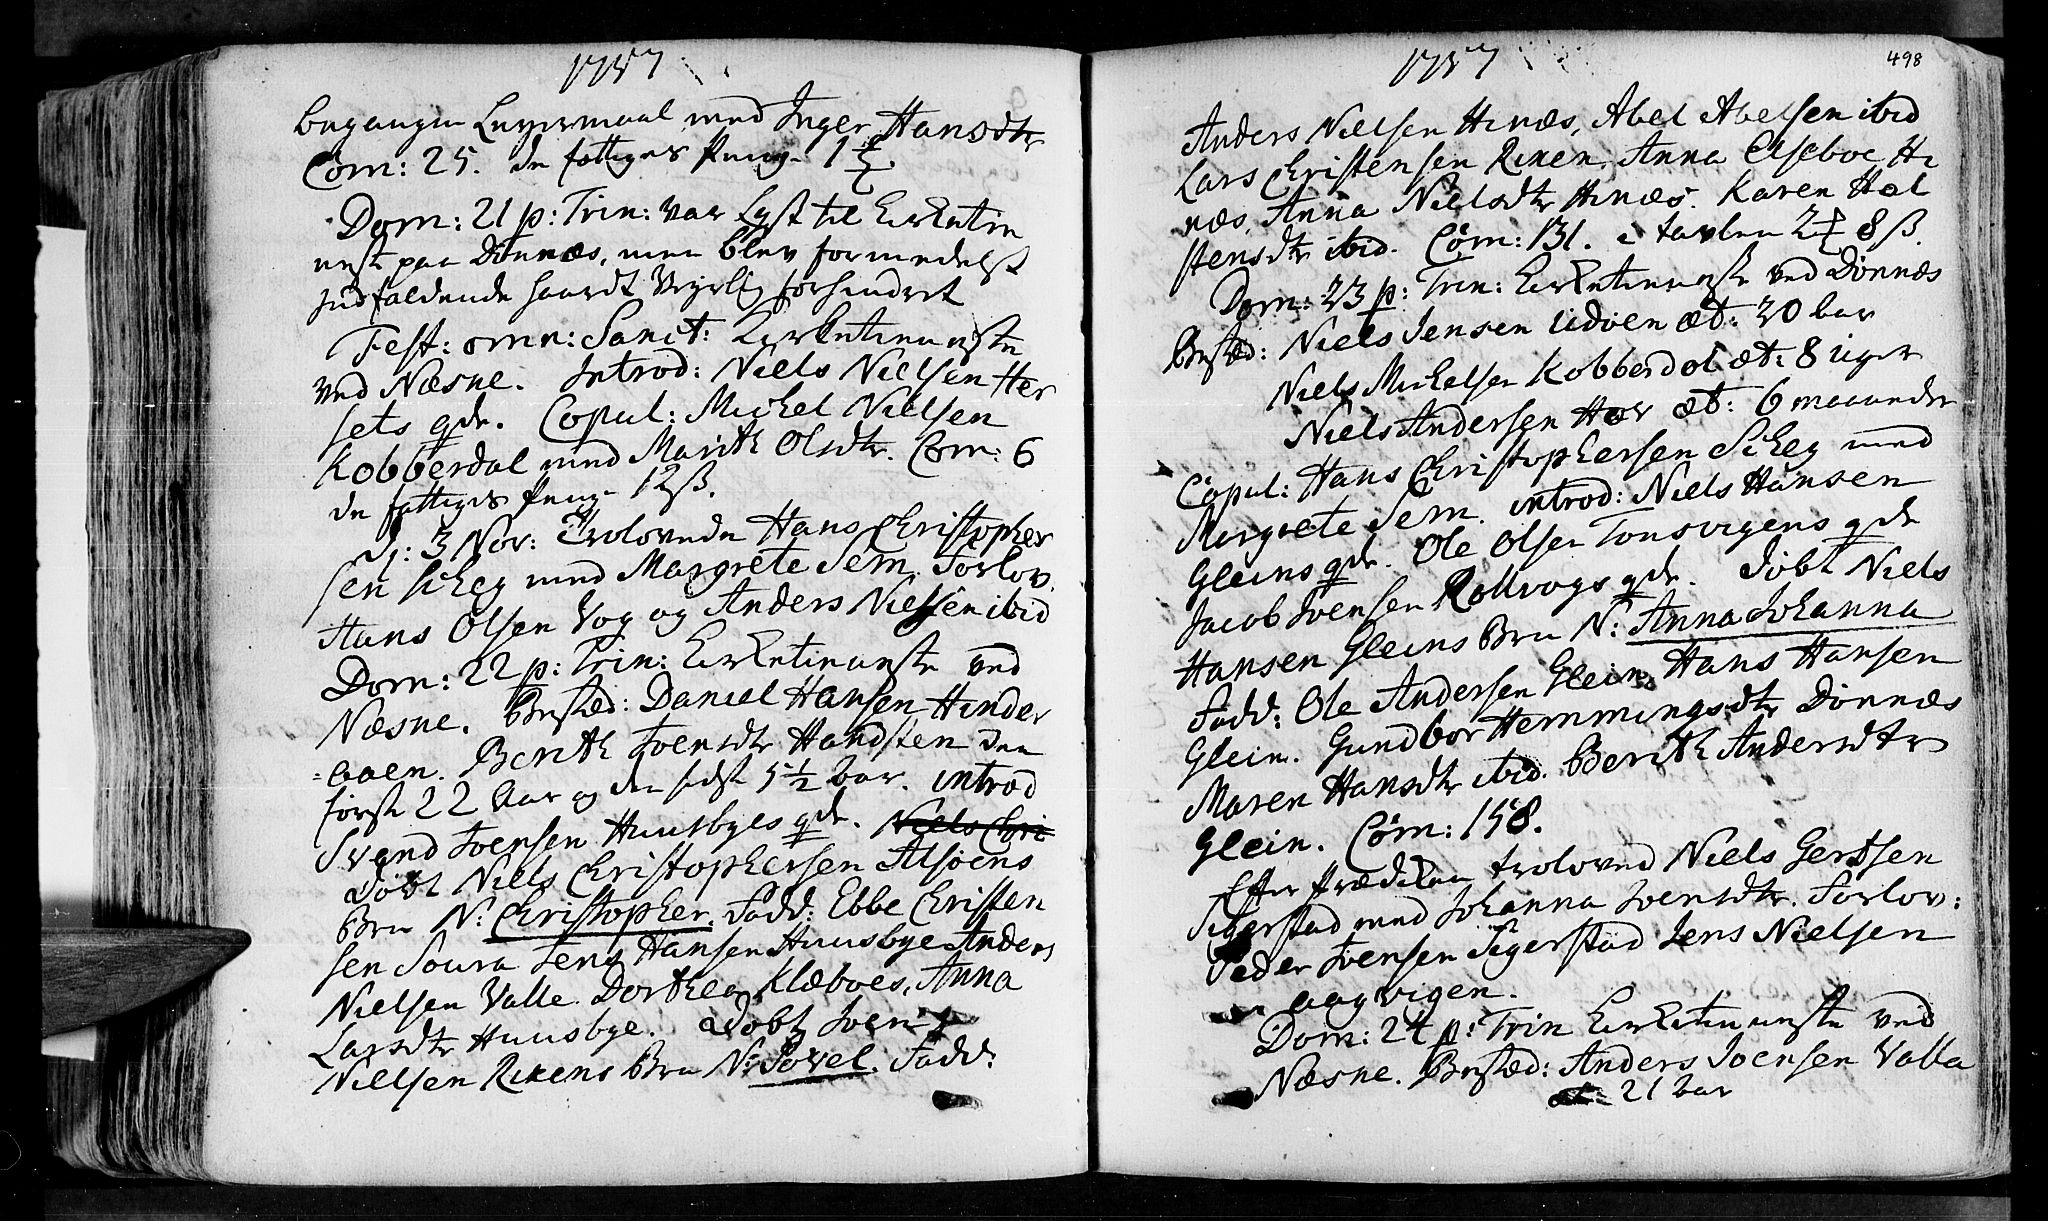 1757
begangen Leyermaal med Inger Hansdtr
Com: 25. de fattiges Penge 1
Dom: 21 p: Trin: var Lyst til Kirketien
neste paa Dönnæs, men blev formedelst
indfaldende haardt Veyrlig forhindret
Fest: omn: Sanct: Kirketieneste
ved Næsne. Introd: Niels Nielsen Her
sets qde. Copul: Michel Nielsen
Kobberdal med Marith Olsdtr. Com: 6
de fattiges Penge 12 ß.
d: 3 Nov: Trolovede Hans Christopher
sen Scheg med Margrete Sem. Forlov:
Hans Olsen Vog og Anders Nielsen ibid
Dom: 22 p: Trin: Kirketieneste ved
Næsne. Begræd: Daniel Hansen Hinder
aaen. Berith Joensdtr Handsten den
förste 22 Aar og den sidst 5½ aar. introd
Svend Joensen Huusbyes qde. Niels Chri
Döbt Niels Christophersen Alsöens
Brn N: Christopher. Fadd: Ebbe Christen
sen Soura Jens Hansen Huusbye Anders
Nielsen Valle. Dorthea Klæboes, Anna
Larsdtr Huusbye. Döbt Joen
Nielsen Rikens Brn N: Povel. Fadd:
1757
498
Anders Nielsen Hinæs, Abel Abelsen ibid
Lars Christensen Riken, Anna Elseboe Hi
næs, Anna Nielsdtr Hinæs. Karen Hol
stensdtr ibid. Com: 131. i tavlen 2 8 ß.
Dom: 23 p: Trin: Kirketieneste ved Dönnæs
Begræd: Niels Jensen Udöen æt: 30 aar
Niels Michelsen Kobberdal æt: 8 uger
Niels Andersen Hær æt: 6 maaneder
Copul: Hans Christophersen Scheg med
Margrete Sem. introd: Niels Hansen
Gleins qde. Ole Olsen Tonsvigens qde
Jacob Joensen Rollvogs qde. Döbt Niels
Hansen Gleins Brn N: Anna Johanna
Fadd: Ole Andersen Glein, Hans Hansen
Glein. Gundbor Hemmingsdtr Dönnæs
Maren Hansdtr ibid. Berith Andersdtr
Glein. Com: 158.
Efter Prædiken troloved Niels Gertsen
Sigerstad med Johanna Joensdtr. Forlov:
Peder Joensen Sigerstad Jens Nielsen
aagvigen.
Dom: 24 p: Trin Kirketieneste ved
Næsne. Begræd: Anders Joensen Valla
æt: 21 aar